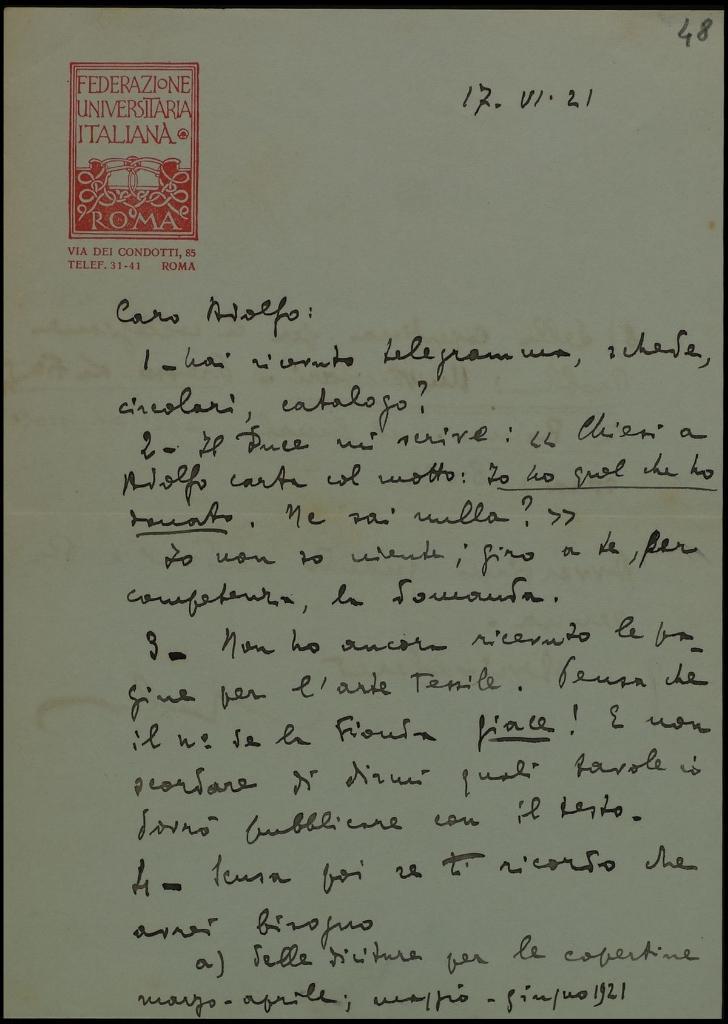 48
FEDERAZIONE
UNIVERSITARIA
ITALIANA
ROMA
VIA DEI CONDOTTI, 85
TELEF. 31-41 ROMA
17. VI. 21
Caro Adolfo:
1 - hai ricevuto telegramma, schede,
circolari, catalogo?
2 - Il Duce mi scrive: << Chiesi a
Adolfo carta col motto: Io ho quel che ho
donato. Ne sai nulla? >>
Io non so niente; giro a te, per
competenza, la domanda.
3 - Non ho ancora ricevuto le pa-
gine per l'arte tessile. Pensa che
il nº de la Fionda giace! E non
scordare di dirmi quali tavole io
dovrò pubblicare con il testo.
4 - Scusa poi se ti ricordo che
avrei bisogno
a) delle diciture per le copertine
marzo-aprile; maggio-giugno 1921